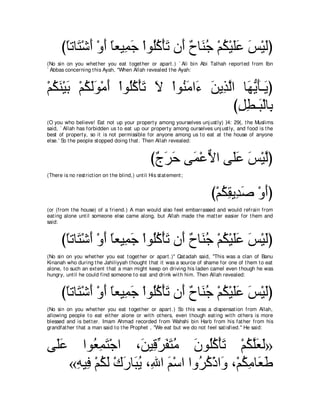 (لَيْسَ عَلَيْكُمْ جُنَاحٌ أَن تَأْكُلُواْ جَمِيعاً أَوْ أَشْتَاتاً)
(No sin on you whether you eat together or apart.) `Ali bin Abi Talhah reported from Ibn
`Abbas concerning this Ayah, "When Allah revealed the Ayah:
(يَأَيُّهَا الَّذِينَ ءَامَنُواْ لاَ تَأْكُلُواْ أَمْوَلَكُمْ بَيْنَكُمْ
بِالْبَـطِلِ)
(O you who believe! Eat not up your property among yourselves unjustly) [4: 29], the Muslims
said, `Allah has forbidden us to eat up our property among ourselves unjustly, and food is the
best of property, so it is not permissible for anyone among us to eat at the house of anyone
else.' So the people stopped doing that. Then Allah revealed:
(لَّيْسَ عَلَى الاٌّعْمَى حَرَجٌ)
(There is no restriction on the blind,) until His statement;
(أَوْ صَدِيقِكُمْ)
(or (from the house) of a friend.) A man would also feel embarrassed and would refrain from
eating alone until someone else came along, but Allah made the matter easier for them and
said:
(لَيْسَ عَلَيْكُمْ جُنَاحٌ أَن تَأْكُلُواْ جَمِيعاً أَوْ أَشْتَاتاً)
(No sin on you whether you eat together or apart.)" Qatadah said, "This was a clan of Banu
Kinanah who during the Jahiliyyah thought that it was a source of shame for one of them to eat
alone, to such an extent that a man might keep on driving his laden camel even though he was
hungry, until he could find someone to eat and drink with him. Then Allah revealed:
(لَيْسَ عَلَيْكُمْ جُنَاحٌ أَن تَأْكُلُواْ جَمِيعاً أَوْ أَشْتَاتاً)
(No sin on you whether you eat together or apart.) So this was a dispensation from Allah,
allowing people to eat either alone or with others, even though eating with others is more
blessed and is better. Imam Ahmad recorded from Wahshi bin Harb from his father from his
grandfather that a man said to the Prophet , "We eat but we do not feel satisfied." He said:
«لَعَلَّكُمْ تَأْكُلُونَ مُتَفَرِّقِينَ، اجْتَمِعُوا عَلَى
طَعَامِكُمْ، وَاذْكُرُوا اسْمَ اللهِ، يُبَارَكْ لَكُمْ فِيهِ»